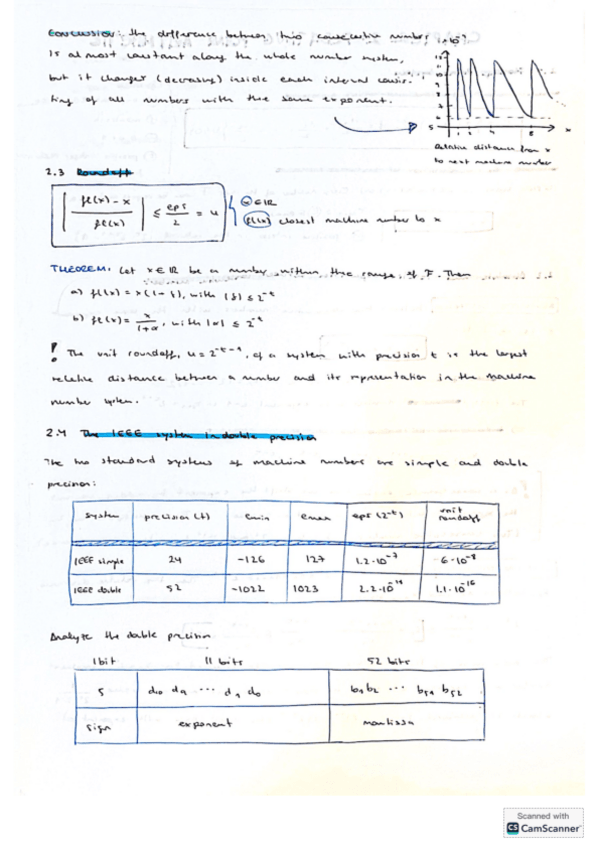 Conclusion: the difference between two consecutive numbers
is almost constant along the whole number system,
but it changes (decreasing) inside each interval consis-
ting of all numbers with the same exponent.
x
Relative distance from x
to next machine number
2.3 Roundoff
| fl(x) - x / fl(x) | ≤ eps/2 = u
x ∈ ℝ
fl(x) closest machine number to x
THEOREM. Let x ∈ ℝ be a number within the range of F. Then
a) fl(x) = x(1-δ), with |δ| ≤ 2^-t
b) fl(x) = x/(1+α), with |α| ≤ 2^-t
! The unit roundoff, u = 2^-t-1, of a system with precision t is the largest
relative distance between a number and its representation in the machine
number system.
2.4 The IEEE system in double precision
The two standard systems of machine numbers are simple and double
precision:
system precision (t) emin emax eps (2^-t) unit roundoff
IEEE simple 24 -126 127 1.2·10^-7 6·10^-8
IEEE double 52 -1022 1023 2.2·10^-16 1.1·10^-16
Analyze the double precision
1 bit 11 bits 52 bits
S d10 d9 ... d1 d0 b1 b2 ... b51 b52
sign exponent mantissa
Scanned with
CS CamScanner